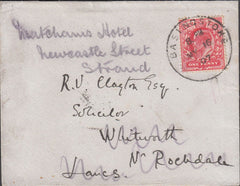 Matchams Hotel
Newcastle Street
Strand
BASINGSTOKE
R. V. Clayton Esq.
Solicitor
Whitworth
Nr Rochdale
Lancs.